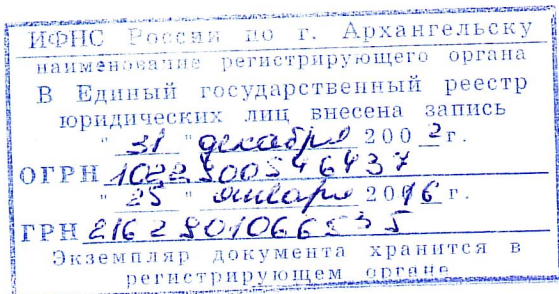 ИФНС России по г. Архангельску
наименование регистрирующего органа
В Единый государственный реестр
юридических лиц внесена запись
" 31 " декабря 200 2 г.
ОГРН 1022900546437
" 25 " января 2016 г.
ГРН 2162901066535
Экземпляр документа хранится в
регистрирующем органе